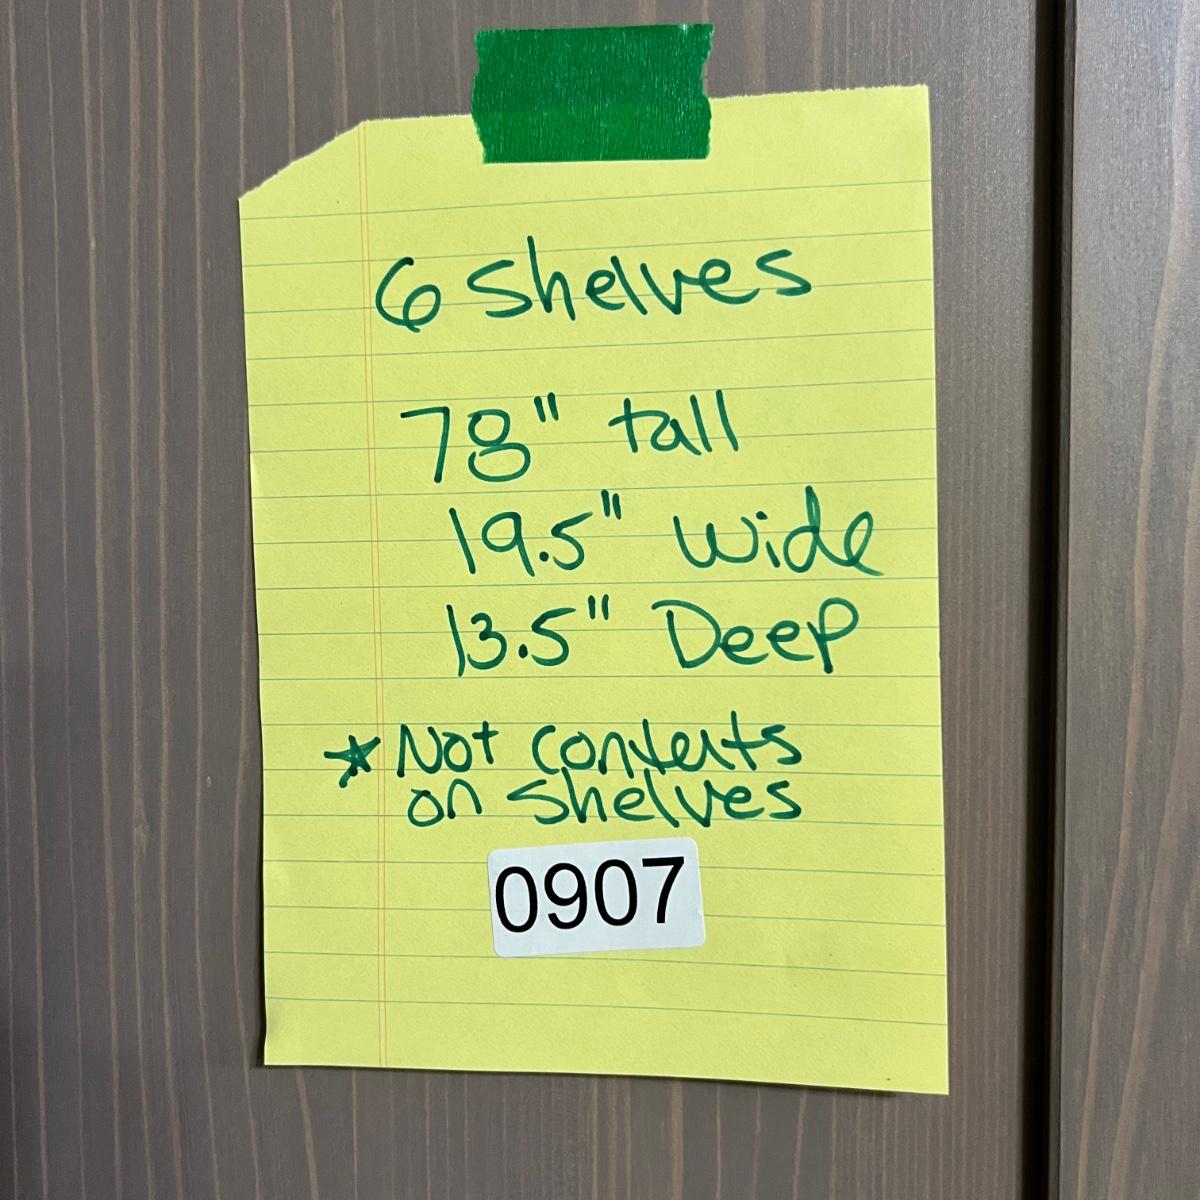 6 Shelves
78" tall
19.5" Wide
13.5" Deep
* Not contents
on Shelves
0907